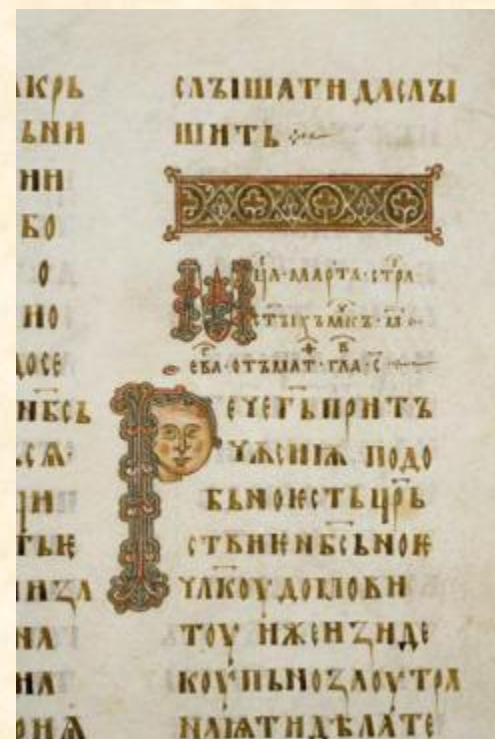 акрь
ьни
ни
бо
о
но
досе
нб҃сь
сѧ·
ци
ица
на
на
онѧ
слꙑшати даслꙑ
шить
мц҃а·марта·стра
стꙑхъ м҃къ·м҃·
ев҃а·отъмат·гла·
Рече г҃ь притъ
чѫ сиѭ подо
бьно ѥсть цр҃ь
ствиѥ нб҃сьноѥ
чл҃коу домови
тоу иже изиде
коупьно заоутра
наѩтидѣлате